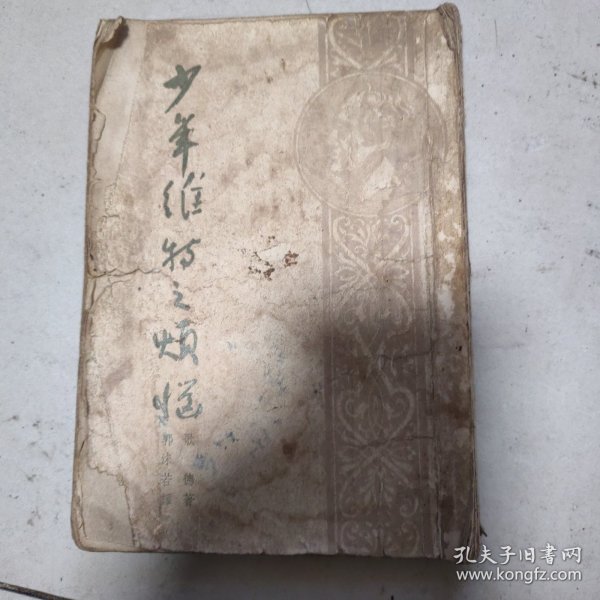 少年維特之煩惱
歌德著
郭沫若譯
孔夫子旧書网
www.kongfz.com